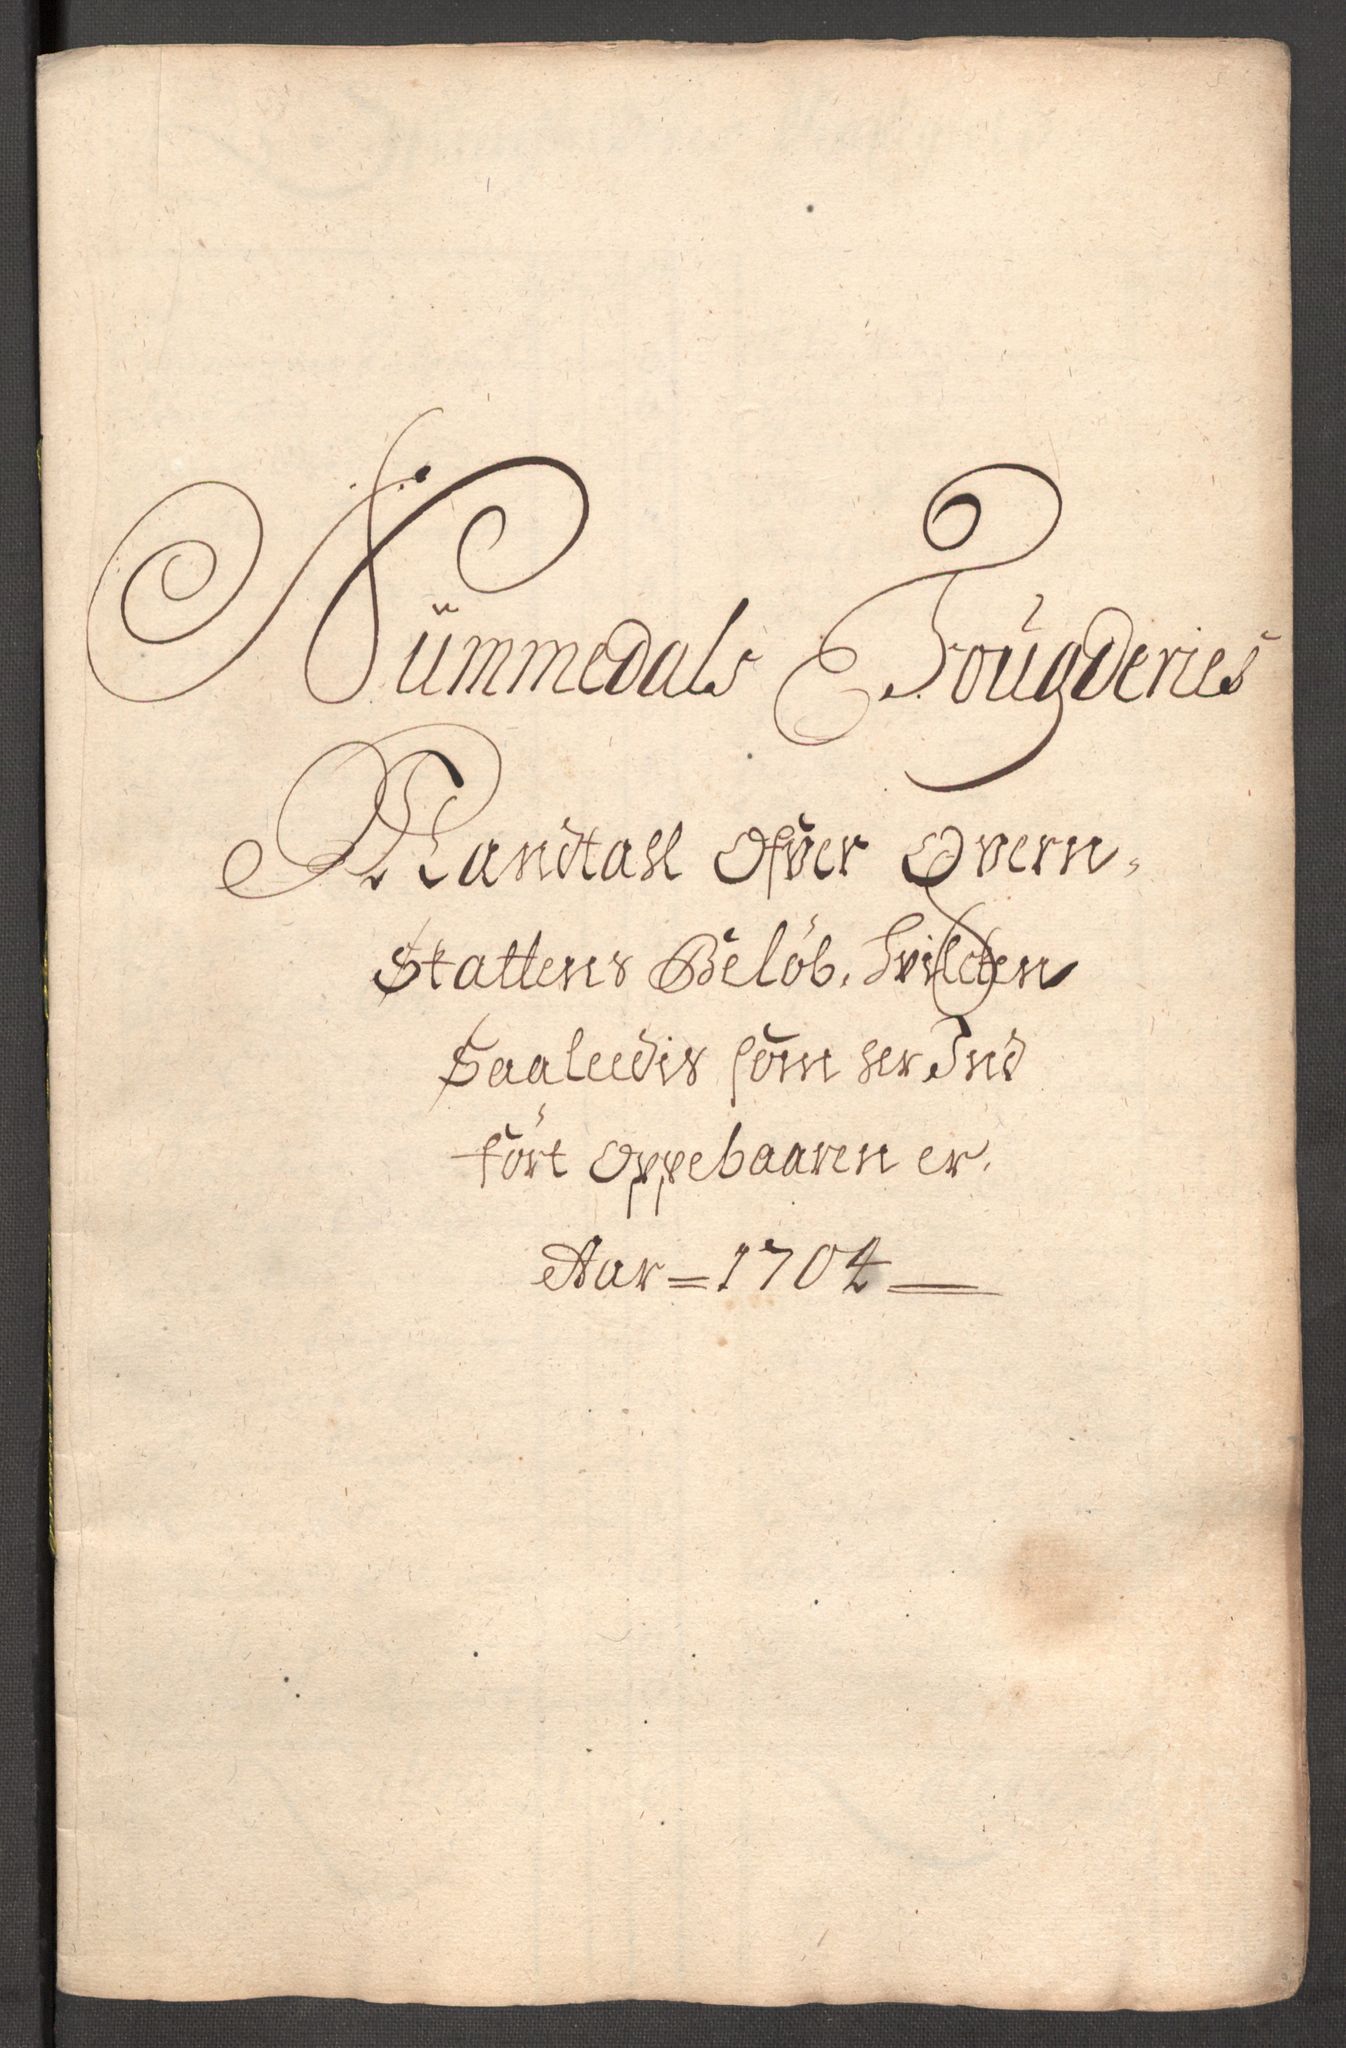 Nümmedals Fougderies
Mandtall Ofver Qvern,
Skattens Beløb, hvilcken
Saaleedis som her Ind
ført Oppebaaren er.
Aar = 1704